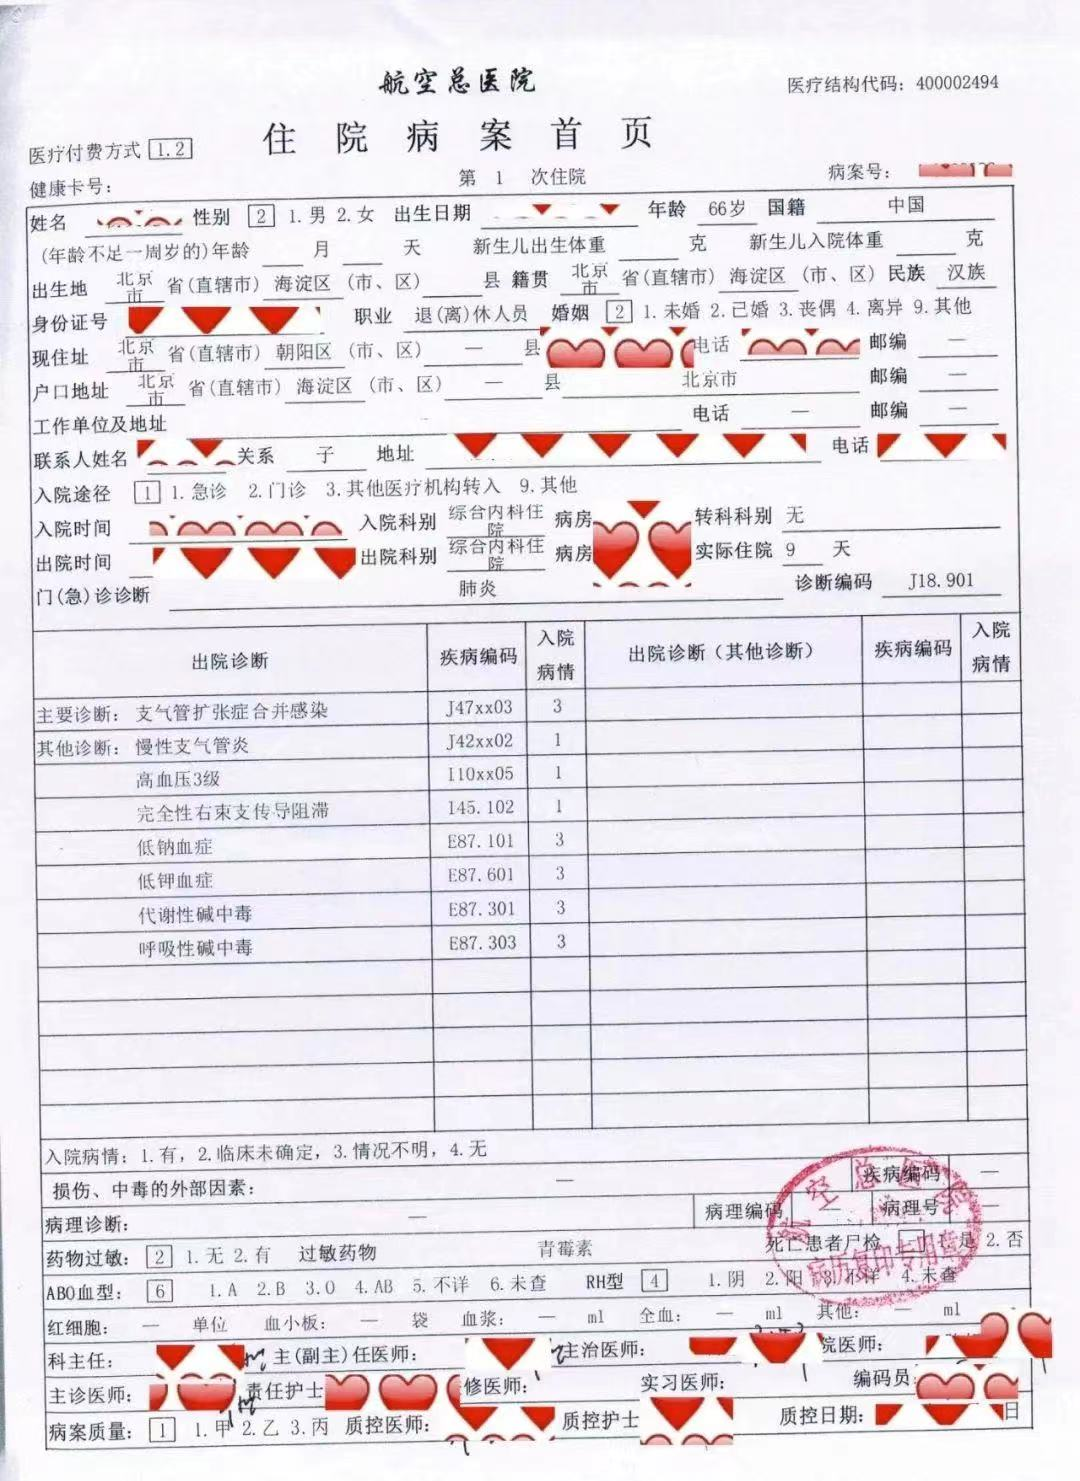 航空总医院
医疗结构代码：400002494
住院病案首页
医疗付费方式 1.2
健康卡号： 第 1 次住院 病案号：
姓名 性别 2 1.男 2.女 出生日期 年龄 66岁 国籍 中国
(年龄不足一周岁的)年龄 月 天 新生儿出生体重 克 新生儿入院体重 克
出生地 北京市 省(直辖市) 海淀区 (市、区) 县 籍贯 北京市 省(直辖市) 海淀区 (市、区) 民族 汉族
身份证号 职业 退(离)休人员 婚姻 2 1.未婚 2.已婚 3.丧偶 4.离异 9.其他
现住址 北京市 省(直辖市) 朝阳区 (市、区) — 县 电话 邮编 —
户口地址 北京市 省(直辖市) 海淀区 (市、区) — 县 北京市 邮编 —
工作单位及地址 - 电话 — 邮编 —
联系人姓名 关系 子 地址 电话
入院途径 1 1.急诊 2.门诊 3.其他医疗机构转入 9.其他
入院时间 入院科别 综合内科住院 病房 转科科别 无
出院时间 出院科别 综合内科住院 病房 实际住院 9 天
门(急)诊诊断 肺炎 诊断编码 J18.901
出院诊断 疾病编码 入院病情 出院诊断（其他诊断） 疾病编码 入院病情
主要诊断：支气管扩张症合并感染 J47xx03 3
其他诊断：慢性支气管炎 J42xx02 1
高血压3级 I10xx05 1
完全性右束支传导阻滞 I45.102 1
低钠血症 E87.101 3
低钾血症 E87.601 3
代谢性碱中毒 E87.301 3
呼吸性碱中毒 E87.303 3
入院病情：1.有，2.临床未确定，3.情况不明，4.无
损伤、中毒的外部因素： — 疾病编码 —
病理诊断： — 病理编码 — 病理号 —
药物过敏： 2 1.无 2.有 过敏药物 青霉素 死亡患者尸检 1.是 2.否
ABO血型： 6 1.A 2.B 3.O 4.AB 5.不详 6.未查 RH型 4 1.阴 2.阳 3.不详 4.未查
红细胞： — 单位 血小板： — 袋 血浆： — ml 全血： — ml 其他： — ml
科主任： 主(副主)任医师： 主治医师： 院医师：
主诊医师： 责任护士 修医师： 实习医师： 编码员
病案质量： 1 1.甲 2.乙 3.丙 质控医师： 质控护士 质控日期： 日
航空总医院
病历复印专用章